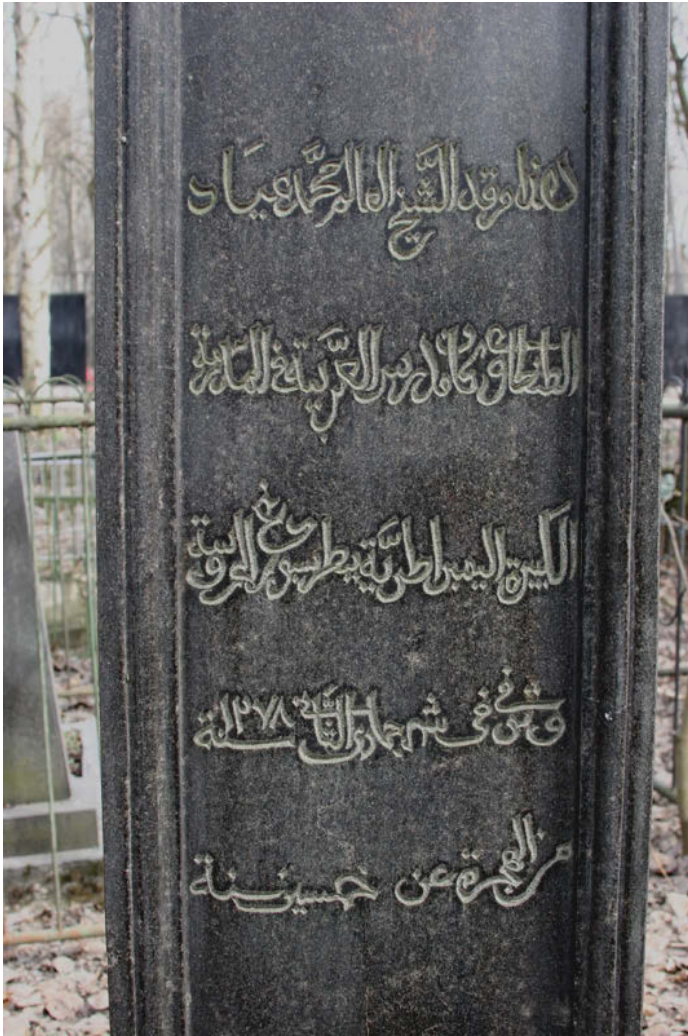 هذا مرقد الشيخ العالم محمد عياد
الطنطاوي كان مدرس العربية في المدرسة
الكبيرة اليمبراطورية ببطرسبورغ المحروسة
وتوفى في شهر جمادى الثاني سنة ١٢٧٨
من الهجرة عن خمسين سنة